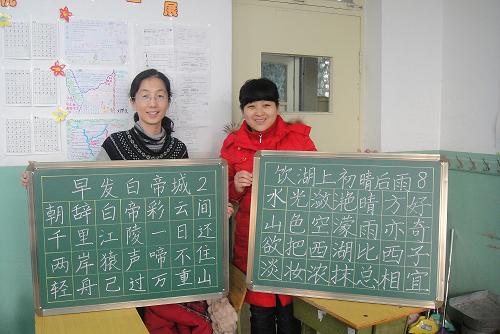 展
早发白帝城2
朝辞白帝彩云间
千里江陵一日还
两岸猿声啼不住
轻舟已过万重山
饮湖上初晴后雨8
水光潋滟晴方好
山色空濛雨亦奇
欲把西湖比西子
淡妆浓抹总相宜